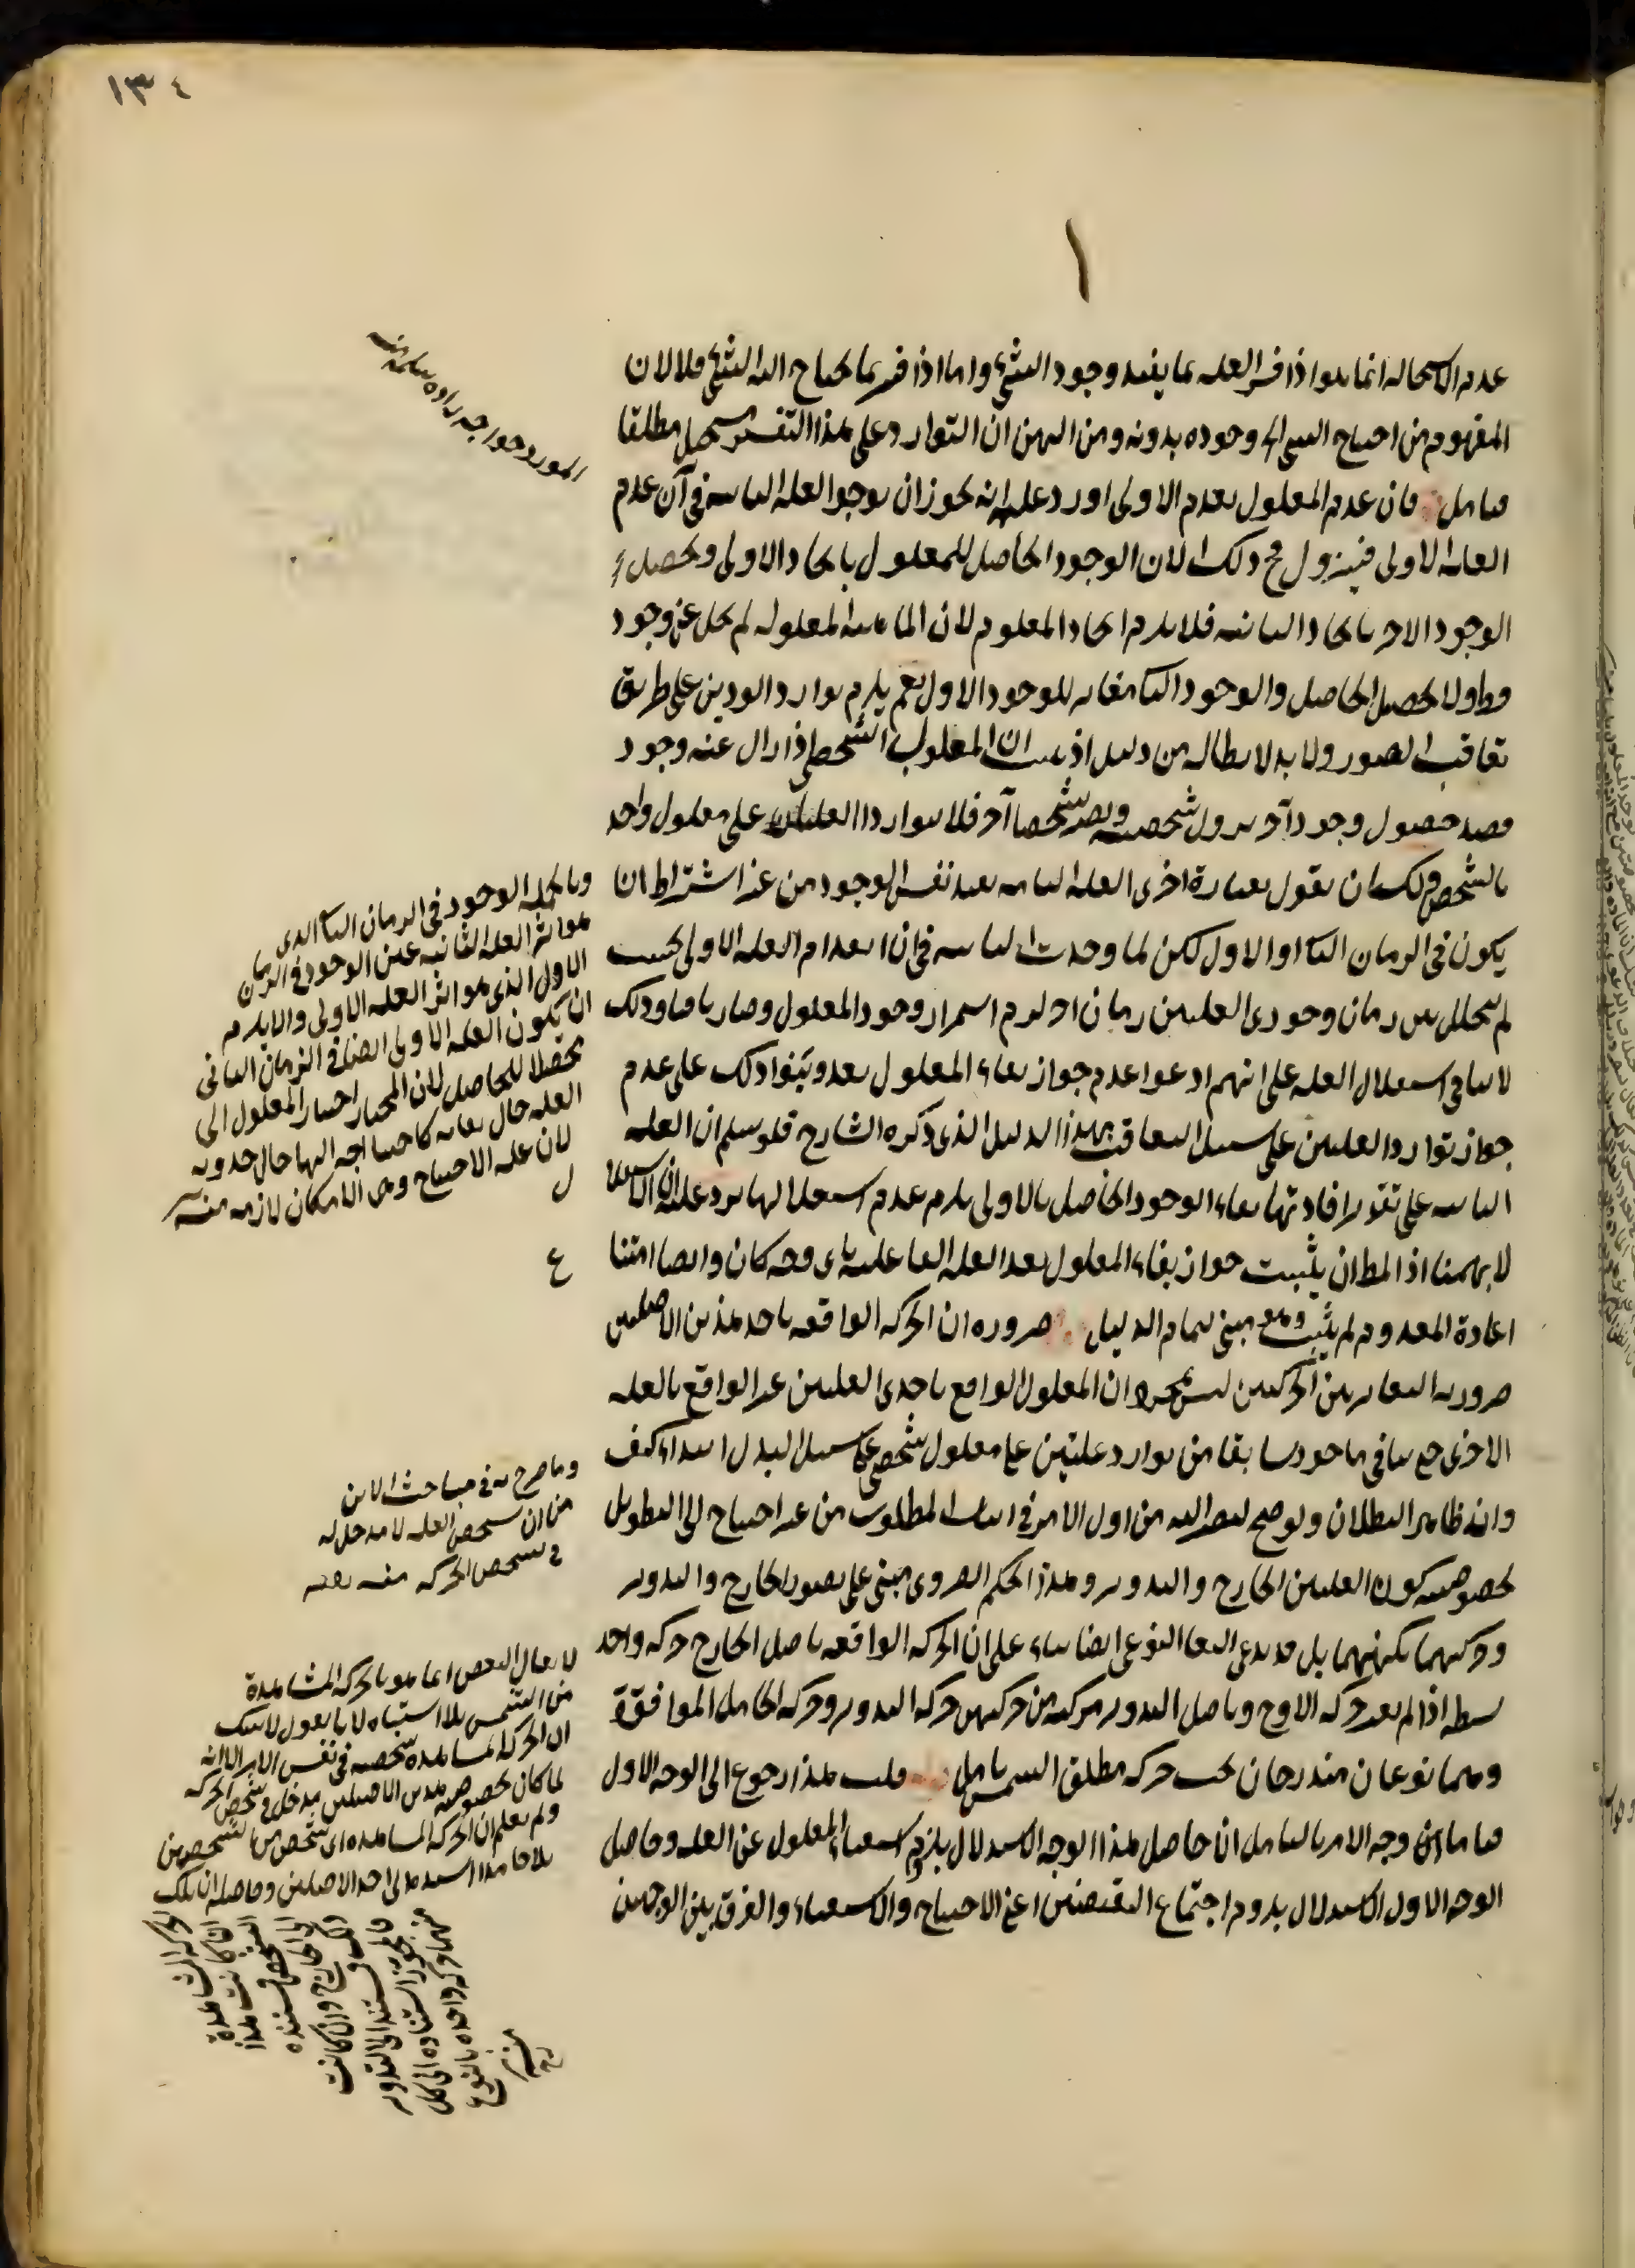 ١٣٤
١
عدم الاستحاله انما هو اذا فسر العله بما يفيد وجود الشئ واما اذا فسر بما يحتاج اليه الشئ فلا لان
المفهوم من احتياج الشئ وجوده بدونه ومن البين ان التوارد على هذا التفسير مستحيل مطلقا
فتامل فان عدم المعلول بعدم الاولى اورد عليه انه يجوز ان يوجد العله الثانيه فى آن عدم
العله الاولى فيزول ح ذلك لان الوجود الحاصل للمعلول بايجاد الاولى ويحصل
الوجود الاخر بايجاد الثانيه فلا يلزم ايجاد المعدوم لان الماهيه المعلوله لم يخل عن وجود
قط ولا تحصيل الحاصل والوجود الثانى مغاير للوجود الاول نعم يلزم توارد الوجودين على طريق
تعاقب الصور ولا بد لابطاله من دليل اذ ان المعلول الشخصى اذا زال عنه وجود
حصول وجود آخر يزول شخصيته ويصير شخصا آخر فلا يتوارد العلتان على معلول واحد
بالشخص ولك ان تقول بعبارة اخرى العله الثانيه تفيد نفس الوجود من غير اشتراط ان
يكون فى الزمان الثانى او الاول لكن لما وجدت الثانيه فى آن انعدام العله الاولى بحيث
لم يتخلل بين زمان وجودى العلتين زمان آخر لزم استمرار وجود المعلول وصار باقيا وذلك
لا ينافى استقلال العله على انهم ادعوا عدم جواز بقاء المعلول بعد وبنوا ذلك على عدم
جواز توارد العلتين على سبيل التعاقب بهذا الدليل الذى ذكره الشارح فلو سلم ان العله
الثانيه على تقدير افادتها بقاء الوجود الحاصل بالاولى يلزم عدم استقلالها يرد عليه ان الاستقلال
لا يهمنا اذ المط ان يثبت جواز بقاء المعلول بعد العله الفاعليه باى وجه كان وايضا امتناع
اعادة المعدوم لم يثبت ومع مبنى تمام الدليل ضروره ان الحركه الواقعه باحد هذين الاصلين
ضروريه التغاير بين الحركتين ليس بمجرد ان المعلول الواقع باحدى العلتين غير الواقع بالعله
الاخرى حتى ينافى ما جوز سابقا من توارد علتين على معلول شخصى على سبيل البدل ابتداء كيف
وانه ظاهر البطلان ولو صح لصير اليه من اول الامر فى اثبات المطلوب من غير احتياج الى التطويل
بخصوصيه كون العلتين الخارج والتدوير وهذا الحكم الضرورى مبنى على تصور الخارج والتدوير
وحركتهما بكنههما بل قد يدعى التغاير النوعى ايضا بناء على ان الحركه الواقعه باصل الخارج حركه واحده
بسيطه اذا لم يعد حركه الاوج وباصل التدوير مركبه من حركتين حركه التدوير وحركه الحامل الموافقة
وهما نوعان مندرجان تحت حركه مطلق الشمس تامل قلت هذا رجوع الى الوجه الاول
وجه الامر بالتامل ان حاصل هذا الوجه الاستدلال بلزوم استغناء المعلول عن العله وحاصل
الوجه الاول الاستدلال بلزوم اجتماع النقيضين اعنى الاحتياج والاستغناء والفرق بين الوجهين
المورد خواجه زاده سلمه منه
وبالجمله الوجود فى الزمان الثانى الذى
هو اثر العله الثانيه عين الوجود فى الزمان
الاول الذى هو اثر العله الاولى والا يلزم
ان يكون العله الاولى ايضا فى الزمان الثانى
محصلا للحاصل لان المختار احتياج المعلول الى
العله حال بقائه كاحتياجه اليها حال حدوثه
لان عله الاحتياج وهى الامكان لازمه منه
ل
ع
وما صرح به فى مباحث الاين
من ان تشخص العله لا مدخل له
فى تشخص الحركه منه
لا يقال التعين انما هو بالحركه المشاهدة
من الشمس بلا اشتباه لانا نقول لا شك
ان الحركه المشاهده شخصيه فى نفس الامر الا انه
لما كان بخصوصيه هذين الاصلين مدخل فى تشخص الحركه
ولم يعلم ان الحركه المشاهده اى شخص من الشخصين
بلا استنادها الى احد الاصلين وحاصله ان تلك
الحركه المشاهدة
ان كانت هذا
الشخص فمستنده
الى الخارج وان كانت
ذلك فمستند الى التدوير
فلا يجوز استناده الى كل
منهما حركه واحده بالنوع
منه